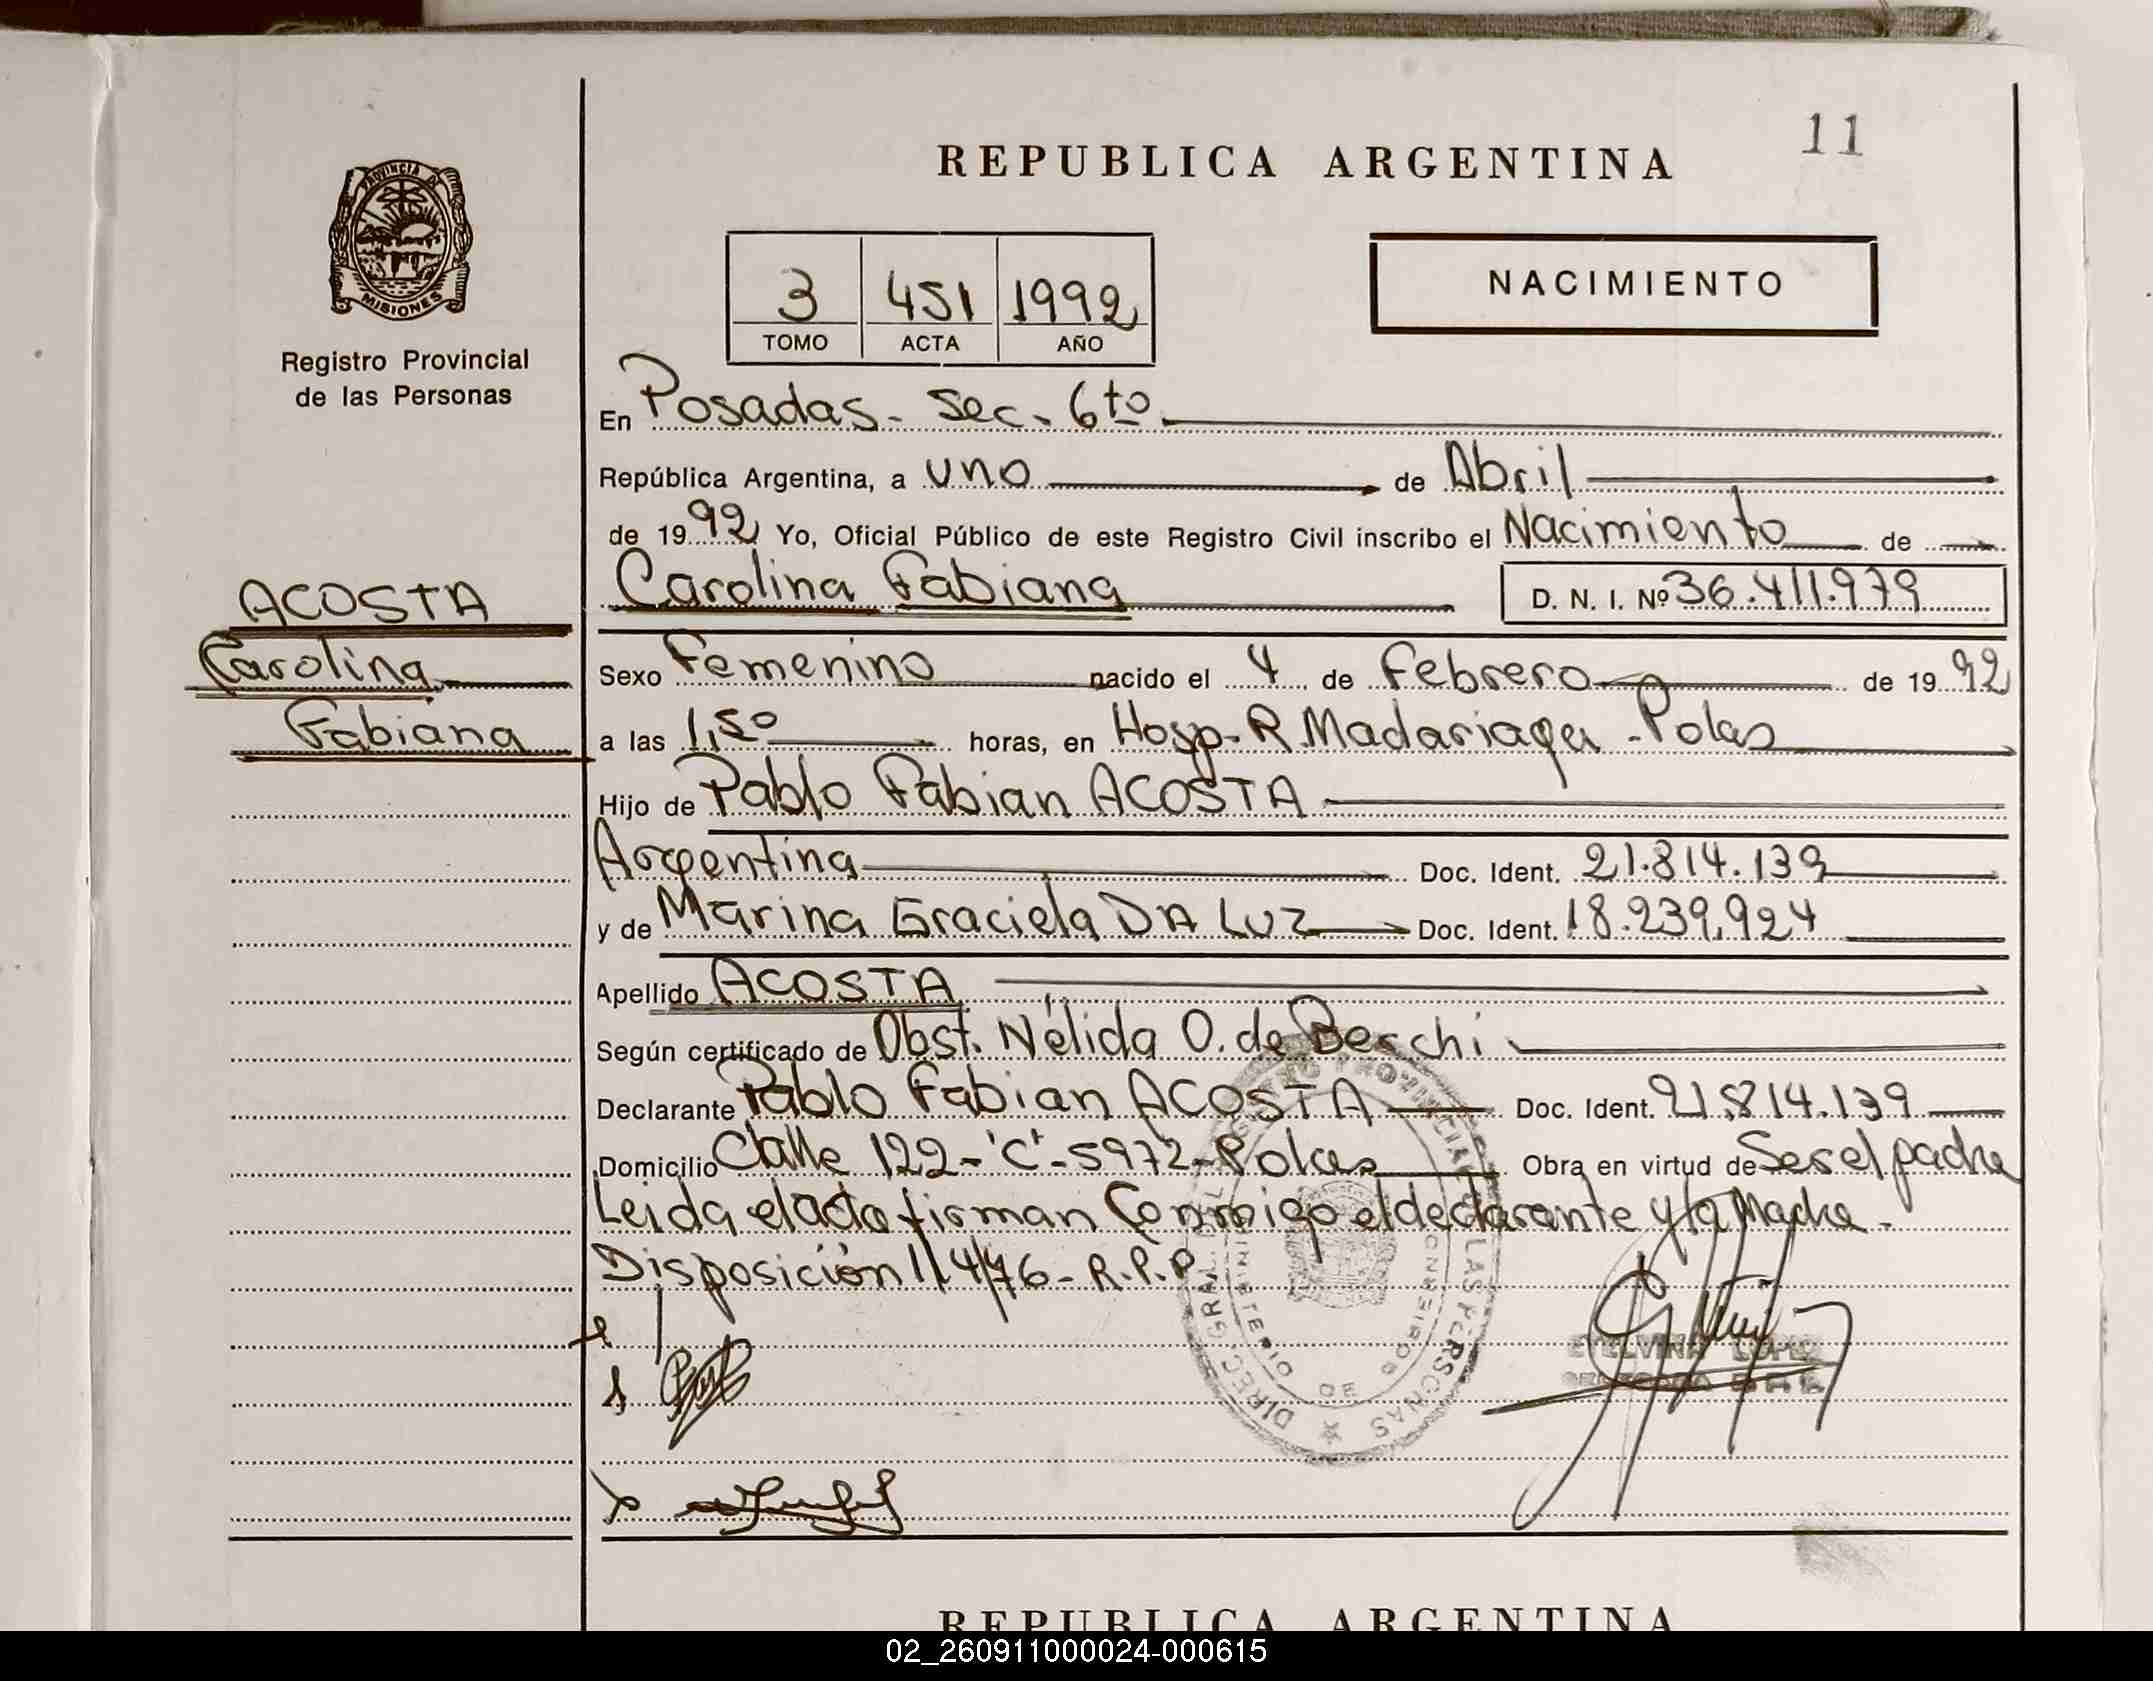 11
REPUBLICA ARGENTINA
PROVINCIA DE
MISIONES
Registro Provincial
de las Personas
NACIMIENTO
3 451 1992
TOMO ACTA AÑO
En Posadas - Sec. 6to
República Argentina, a uno de Abril
de 1992 Yo, Oficial Público de este Registro Civil inscribo el Nacimiento de
Carolina Fabiana D. N. I. Nº 36.411.979
ACOSTA
Carolina
Fabiana
Sexo Femenino nacido el 4 de Febrero de 1992
a las 1,50 horas, en Hosp. R. Madariaga - Pdas
Hijo de Pablo Fabian ACOSTA
Argentina Doc. Ident. 21.814.139
y de Marina Graciela DA LUZ Doc. Ident. 18.239.924
Apellido ACOSTA
Según certificado de Obst. Nélida O. de Berchi
Declarante Pablo Fabian ACOSTA Doc. Ident. 21.814.139
Domicilio Calle 122 - "C" - 5972 - Pdas Obra en virtud de Ser el padre
Leida el acta firman Conmigo el declarante y la Madre.
Disposición 114/76 - R.P.P.
DIREC. GRAL. DEL REGISTRO PROVINCIAL DE LAS PERSONAS
MINISTERIO DE
ETELVINA LOPEZ
REPUBLICA ARGENTINA
02_260911000024-000615